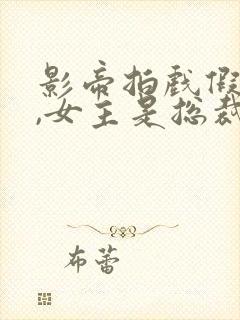 影帝拍戏假
,女主是总裁
布蕾